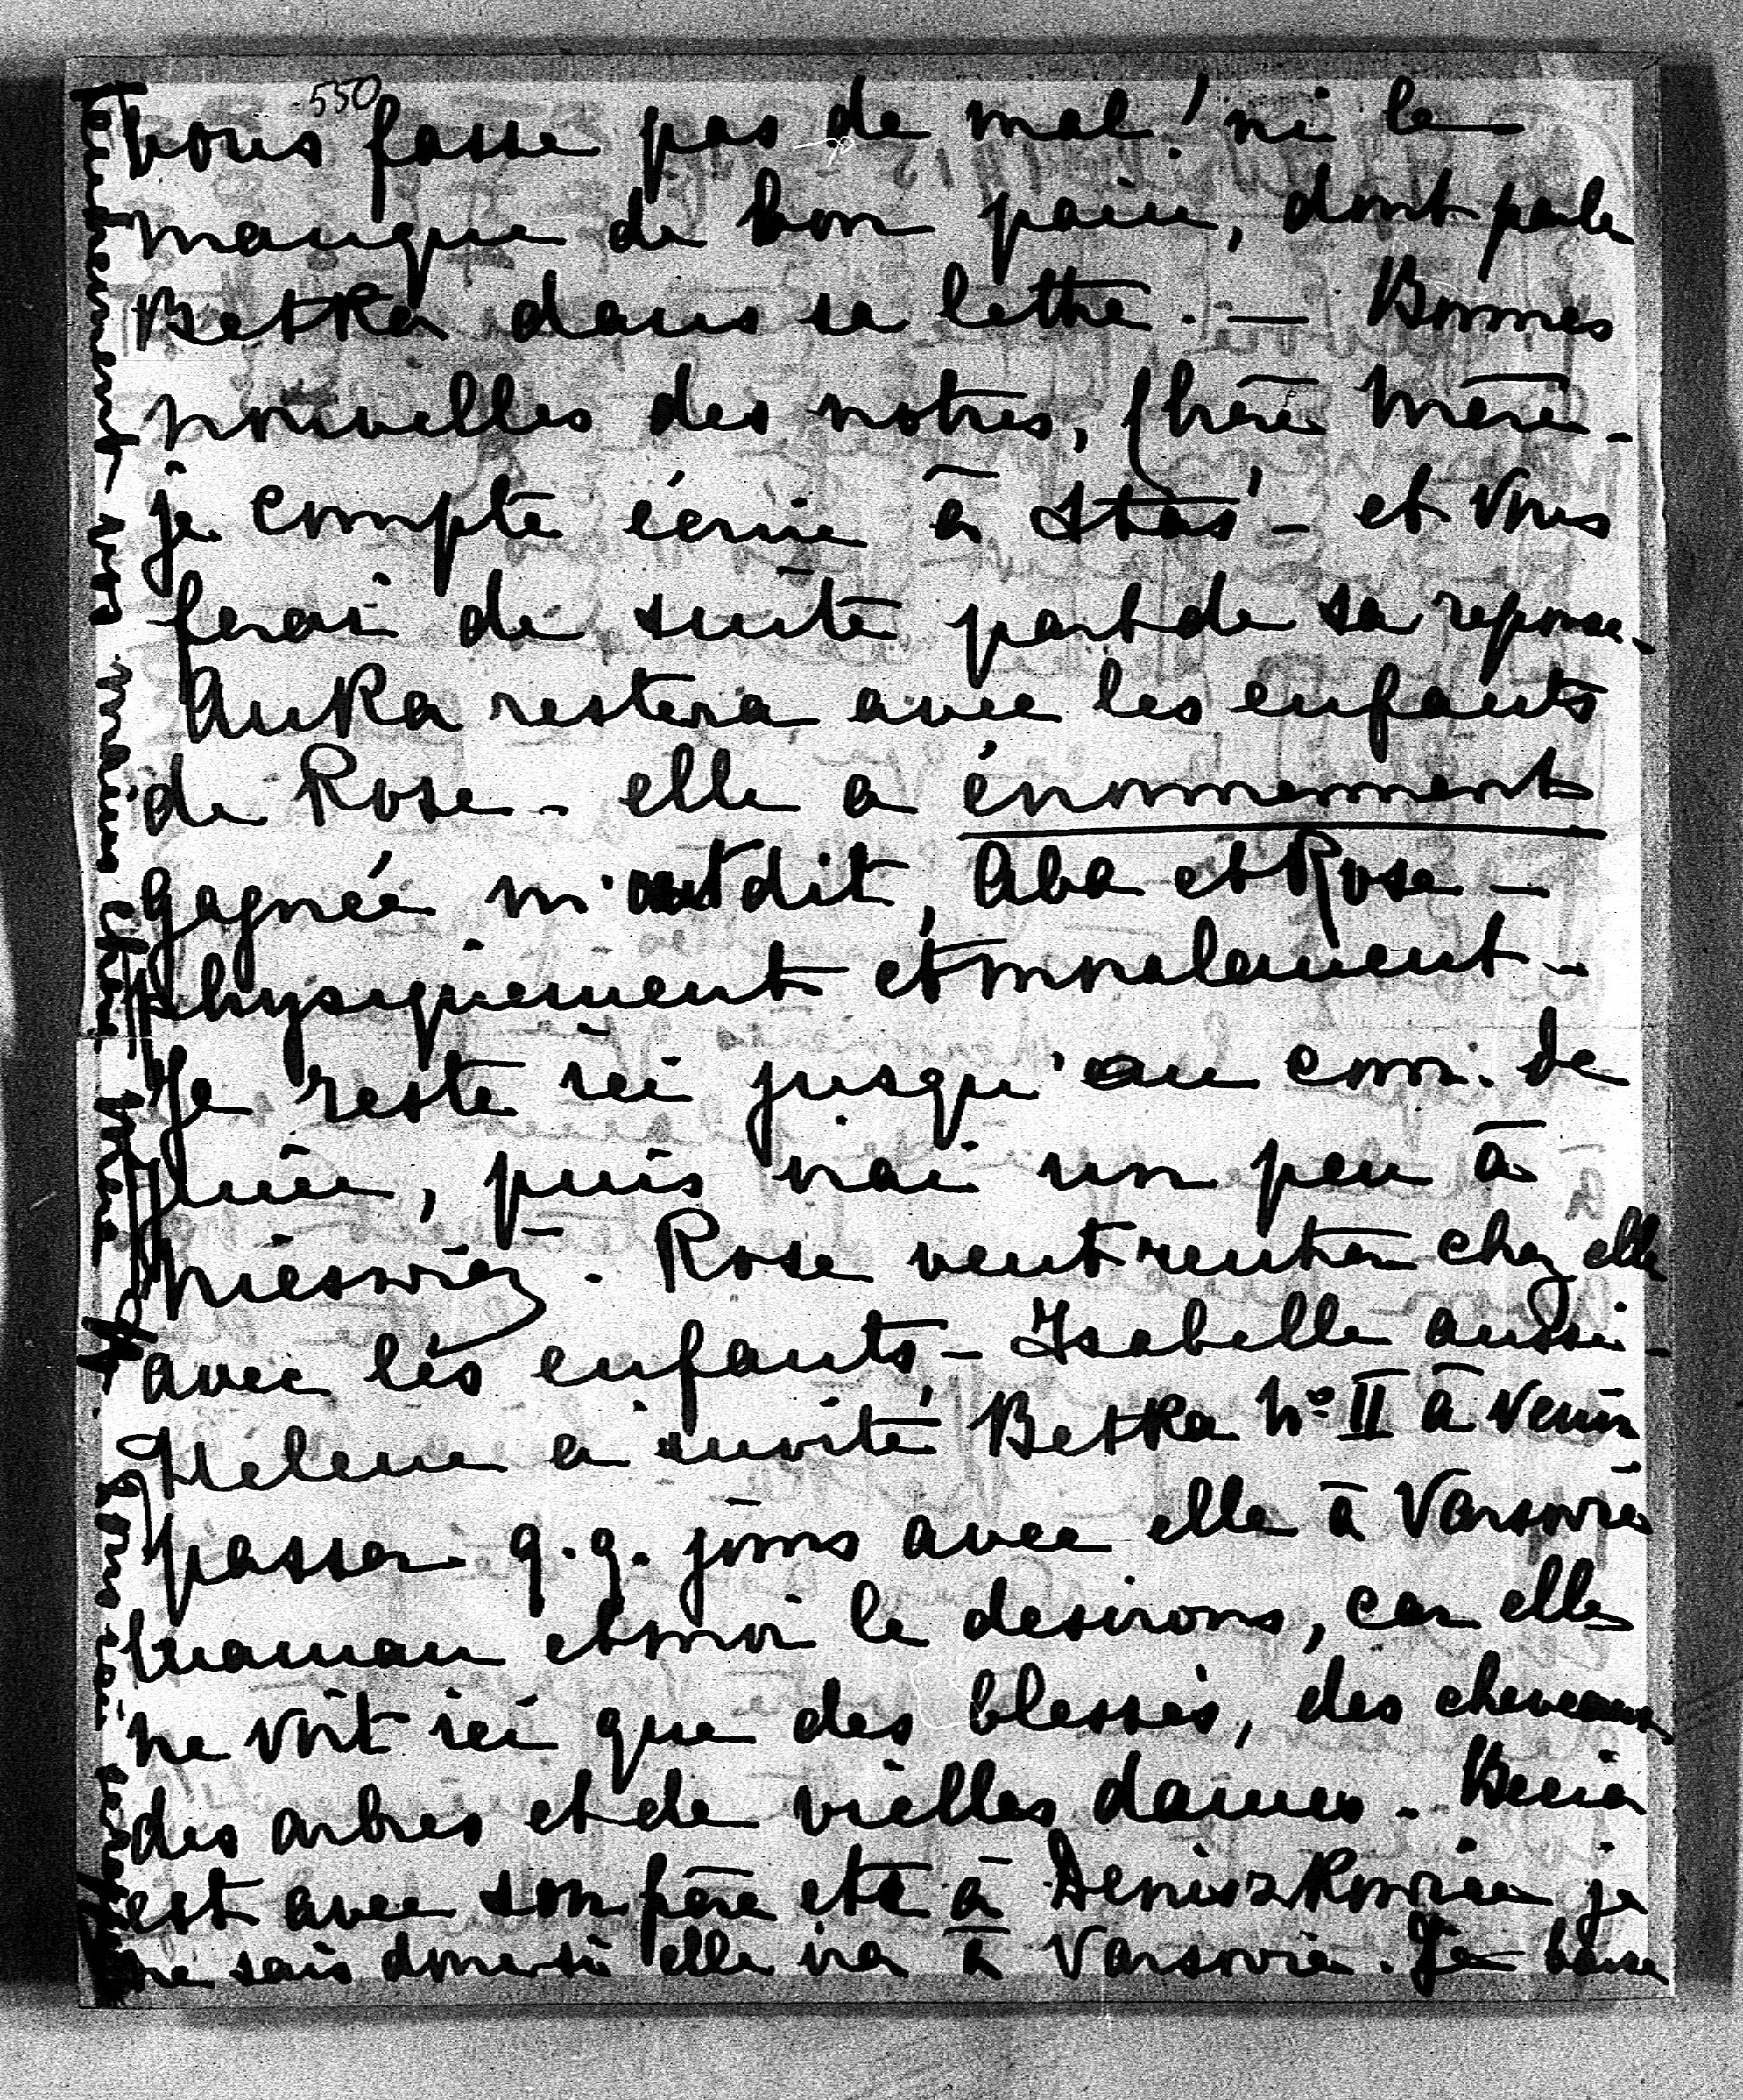 550
vous fasse pas de mal! ni le
manque de bon pain, dont parle
Betka dans sa lettre. — Bonnes
nouvelles des notres, Chère Mère -
je compte écrire à Staś - et Vous
ferai de suite part de sa reponse -
Anka restera avec les enfants
de Rose - elle a énormement
gagnée m'ont dit, Aba et Rose -
physiquement et moralement -
Je reste ici jusqu'au com. de
Juin, puis irai un peu à
Nieswież. Rose veut rentrer chez elle
avec les enfants, - Isabelle aussi -
Helene a invité Betka No II à venir
passer q.q. jours avec elle à Varsovie
maman et moi le desirons, car elle
ne voit ici que des blessés, des cheveaux
des arbres et de vielles dames. Bicia
est avec son père etc à Deniszkowicze je
ne sais donc si elle ira à Varsovie. Je baise
tendrement vos mains chère Mère